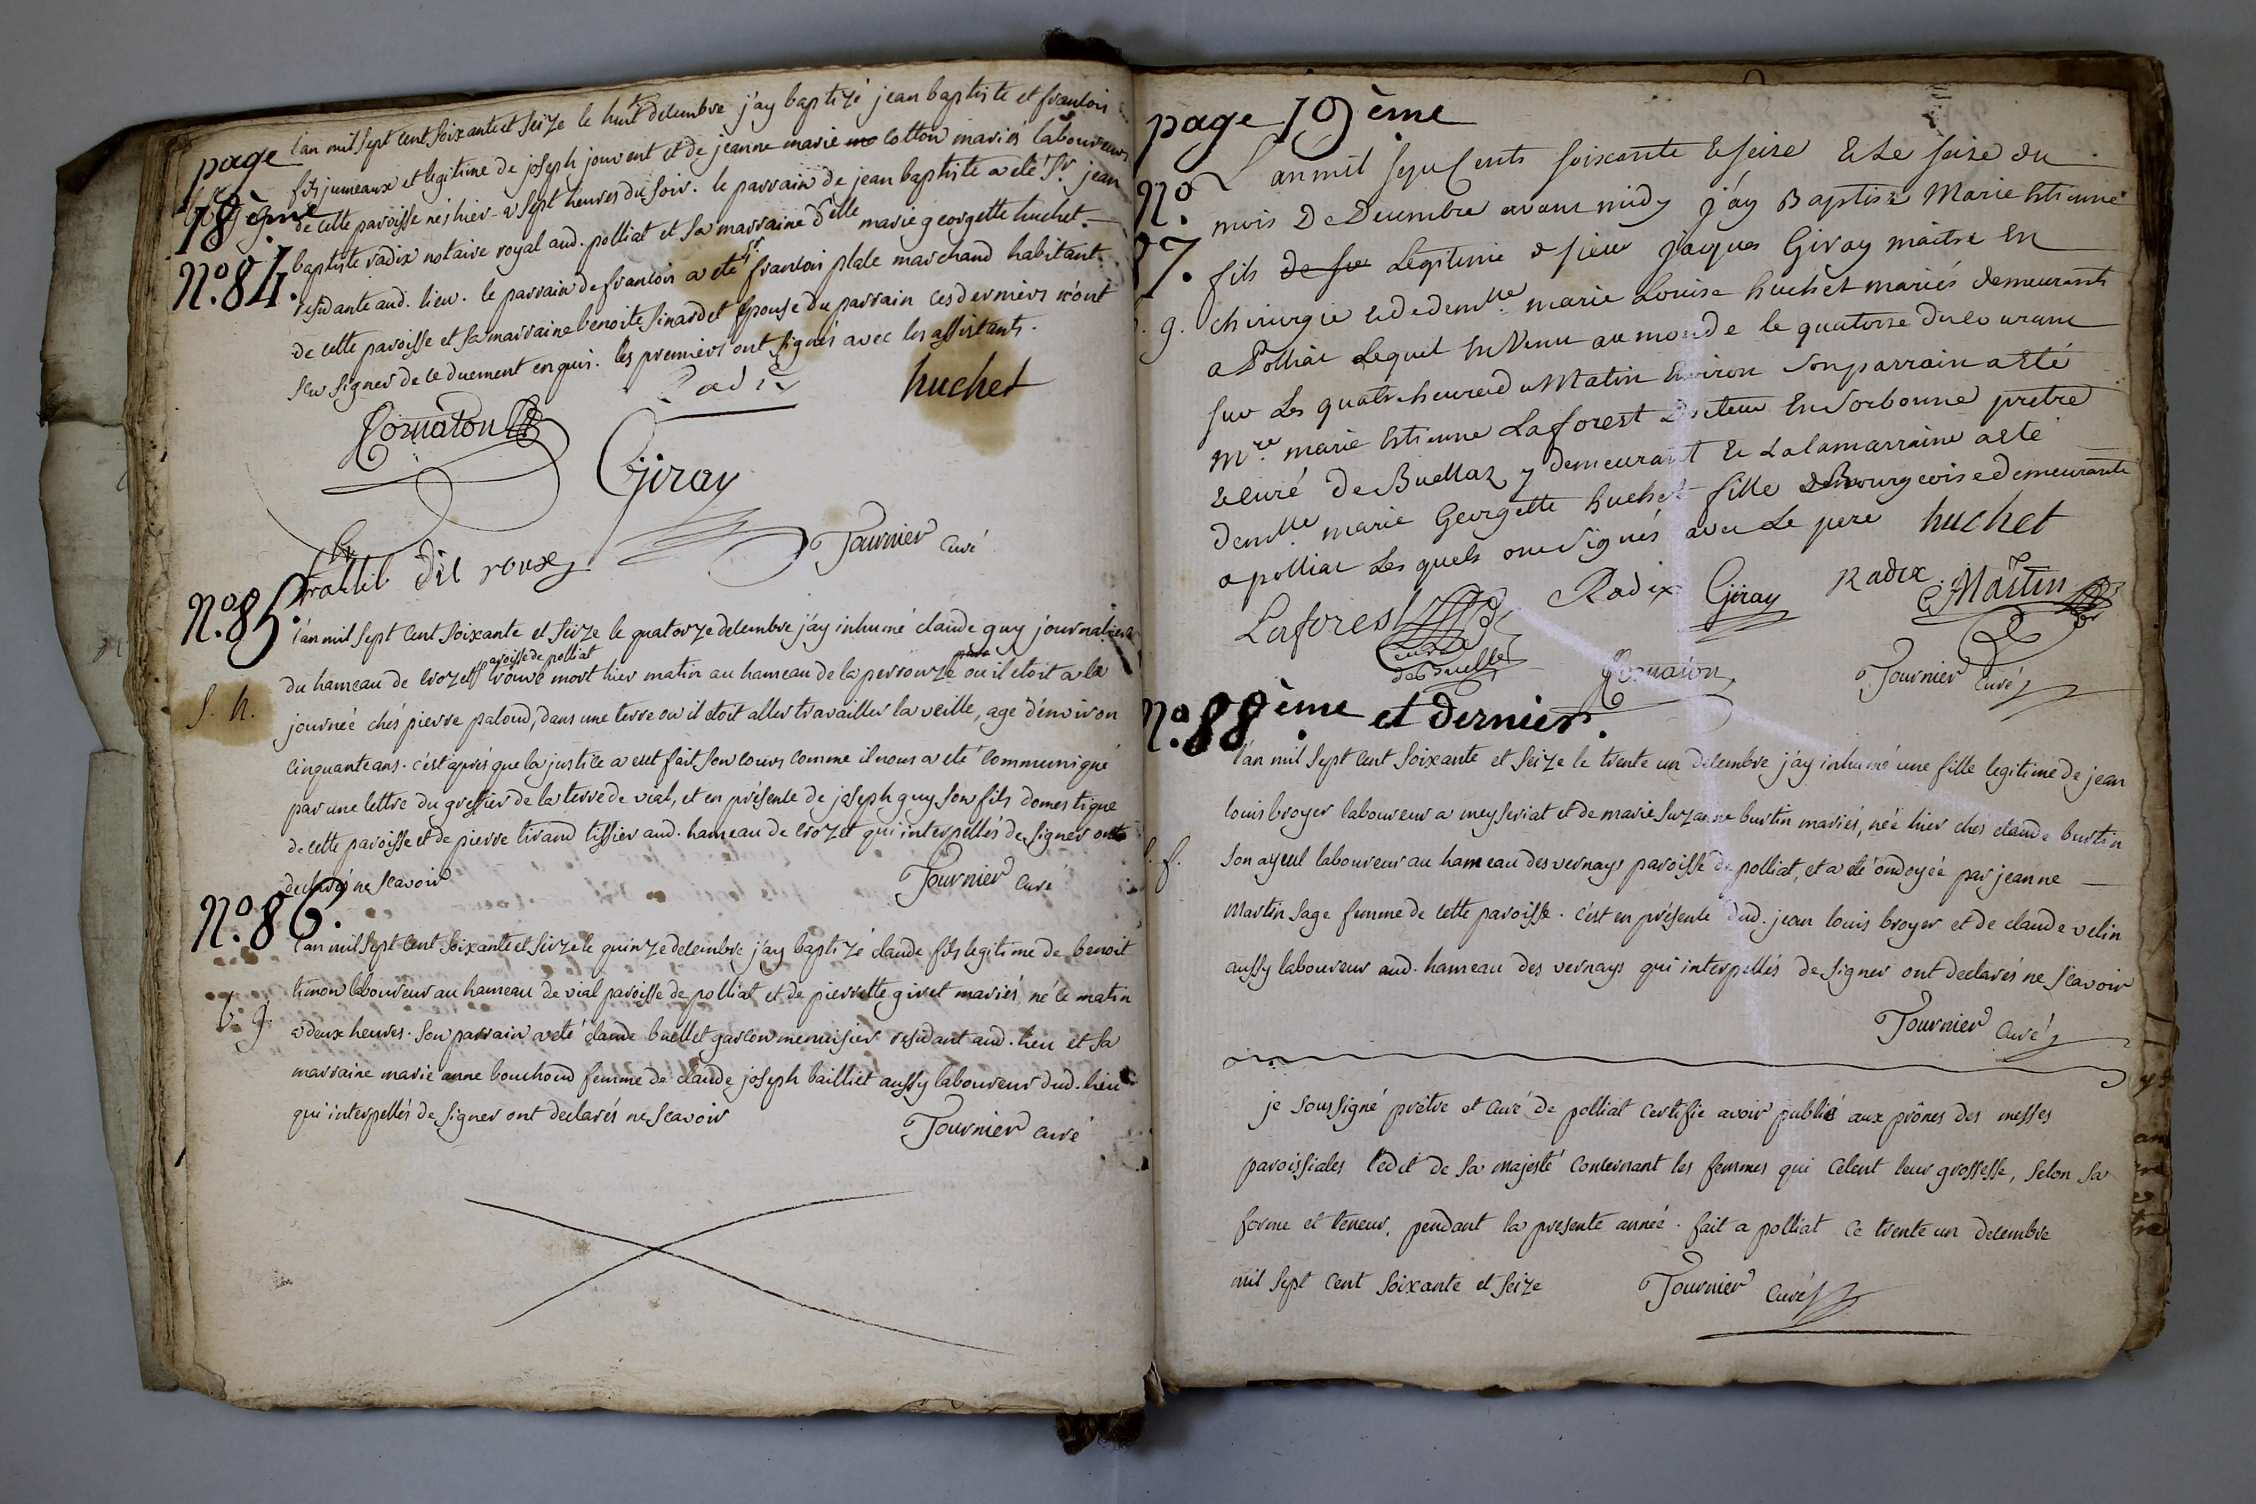 page
18ème
N.º 84.
l'an mil sept cent soixante et seize le huit decembre j'ay baptizé jean baptiste et francois
fils jumeaux et legitime de joseph jouvent et de jeanne marie cotton mariés laboureurs
de cette paroisse nés hier a sept heures du soir. le parrain de jean baptiste a eté Sr. jean
baptiste radix notaire royal aud. polliat et sa marraine delle marie georgette huchet
residante aud. lieu. le parrain de francois a eté sr francois plate marchand habitant
de cette paroisse et sa marraine benoite sinardet epouse du parrain ces derniers n'ont
seu signer de ce duement enquis. les premiers ont signés avec les assistants.
Radix huchet
Cornaton
Giray
dit roux
Tournier curé
N.º 85.
l'an mil sept cent soixante et seize le quatorze decembre j'ay inhumé claude guy journalier
du hameau de crozet paroisse de polliat trouvé mort hier matin au hameau de la perrouze ou il etoit a la
S. h.
journée chés pierre paloud, dans une terre ou il etoit aller travailler la veille, agé d'environ
cinquante ans. c'est après que la justice a eut fait son cours comme il nous a eté communiqué
par une lettre du greffier de la terre de vial, et en présence de joseph guy son fils domestique
de cette paroisse et de pierre tirand tissier aud. hameau de crozet qui interpellés de signer ont
declarés ne scavoir
Tournier curé
N.º 86.
l'an mil sept cent soixante et seize le quinze decembre j'ay baptizé claude fils legitime de benoit
timon laboureur au hameau de vial paroisse de polliat et de pierrette givet mariés, né ce matin
b. g.
a deux heures. son parrain a eté claude buellet garcon menuisier residant aud. lieu et sa
marraine marie anne bouchoud femme de claude joseph bailliet aussy laboureur dud. lieu
qui interpellés de signer ont declarés ne scavoir
Tournier curé
page 19ème
N.º
87.
L'an mil sept Cents soixante & seize & Le seize du
mois De Decembre avant midy j'áy Baptisé Marie Estienne
fils de sr Legitime de sieur jacques Giray maitre En
. g. chirurgie & de demlle. marie Louise huchet mariés demeurants
a Polliat Lequel En Venu au monde le quatorze du courant
sur Les quatre heures du Matin Environ son parrain a Eté
Mre. marie Estienne Laforest Docteur En Sorbonne pretre
& curé de Buellaz y demeurant & La la marraine a eté
demlle marie Georgette huchet fille Bourgeoise demeurante
a polliat Les quels ont signés avec Le pere huchet
Laforest Radix Giray Radix Martin
curé
de Buellas
Cornaton
Tournier curé
N.º 88.ème et dernier.
l'an mil sept cent soixante et seize le trente un decembre j'ay inhumé une fille legitime de jean
louis broyer laboureur a meyseriat et de marie suzanne burtin mariés, née hier chés claude burtin
. f.
son ayeul laboureur au hameau des vernays paroisse de polliat, et a eté ondoyée par jeanne
martin sage femme de cette paroisse. c'est en présence dud. jean louis broyer et de claude velin
aussy laboureur aud. hameau des vernays qui interpellés de signer ont declarés ne scavoir
Tournier curé
je soussigné prêtre et curé de polliat certifie avoir publié aux prônes des messes
paroissiales l'edit de sa majesté concernant les femmes qui celent leur grossesse, selon sa
forme et teneur, pendant la presente année. fait a polliat ce trente un decembre
mil sept cent soixante et seize
Tournier curé